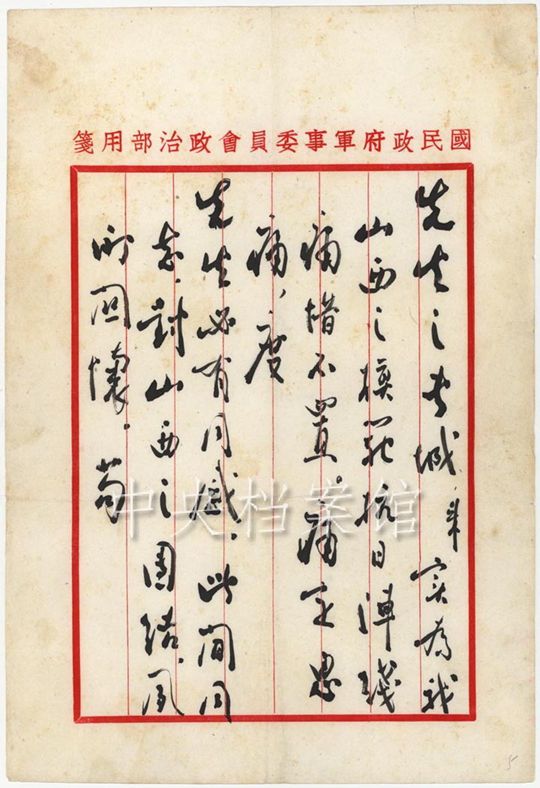 國民政府軍事委員會政治部用箋
先生之長城，實為我
山西之模範抗日陣綫
痛惜不置。痛定思
痛，度
先生必有同感，此間同
志，對山西之團結，夙
所関懷。苟
中央档案馆